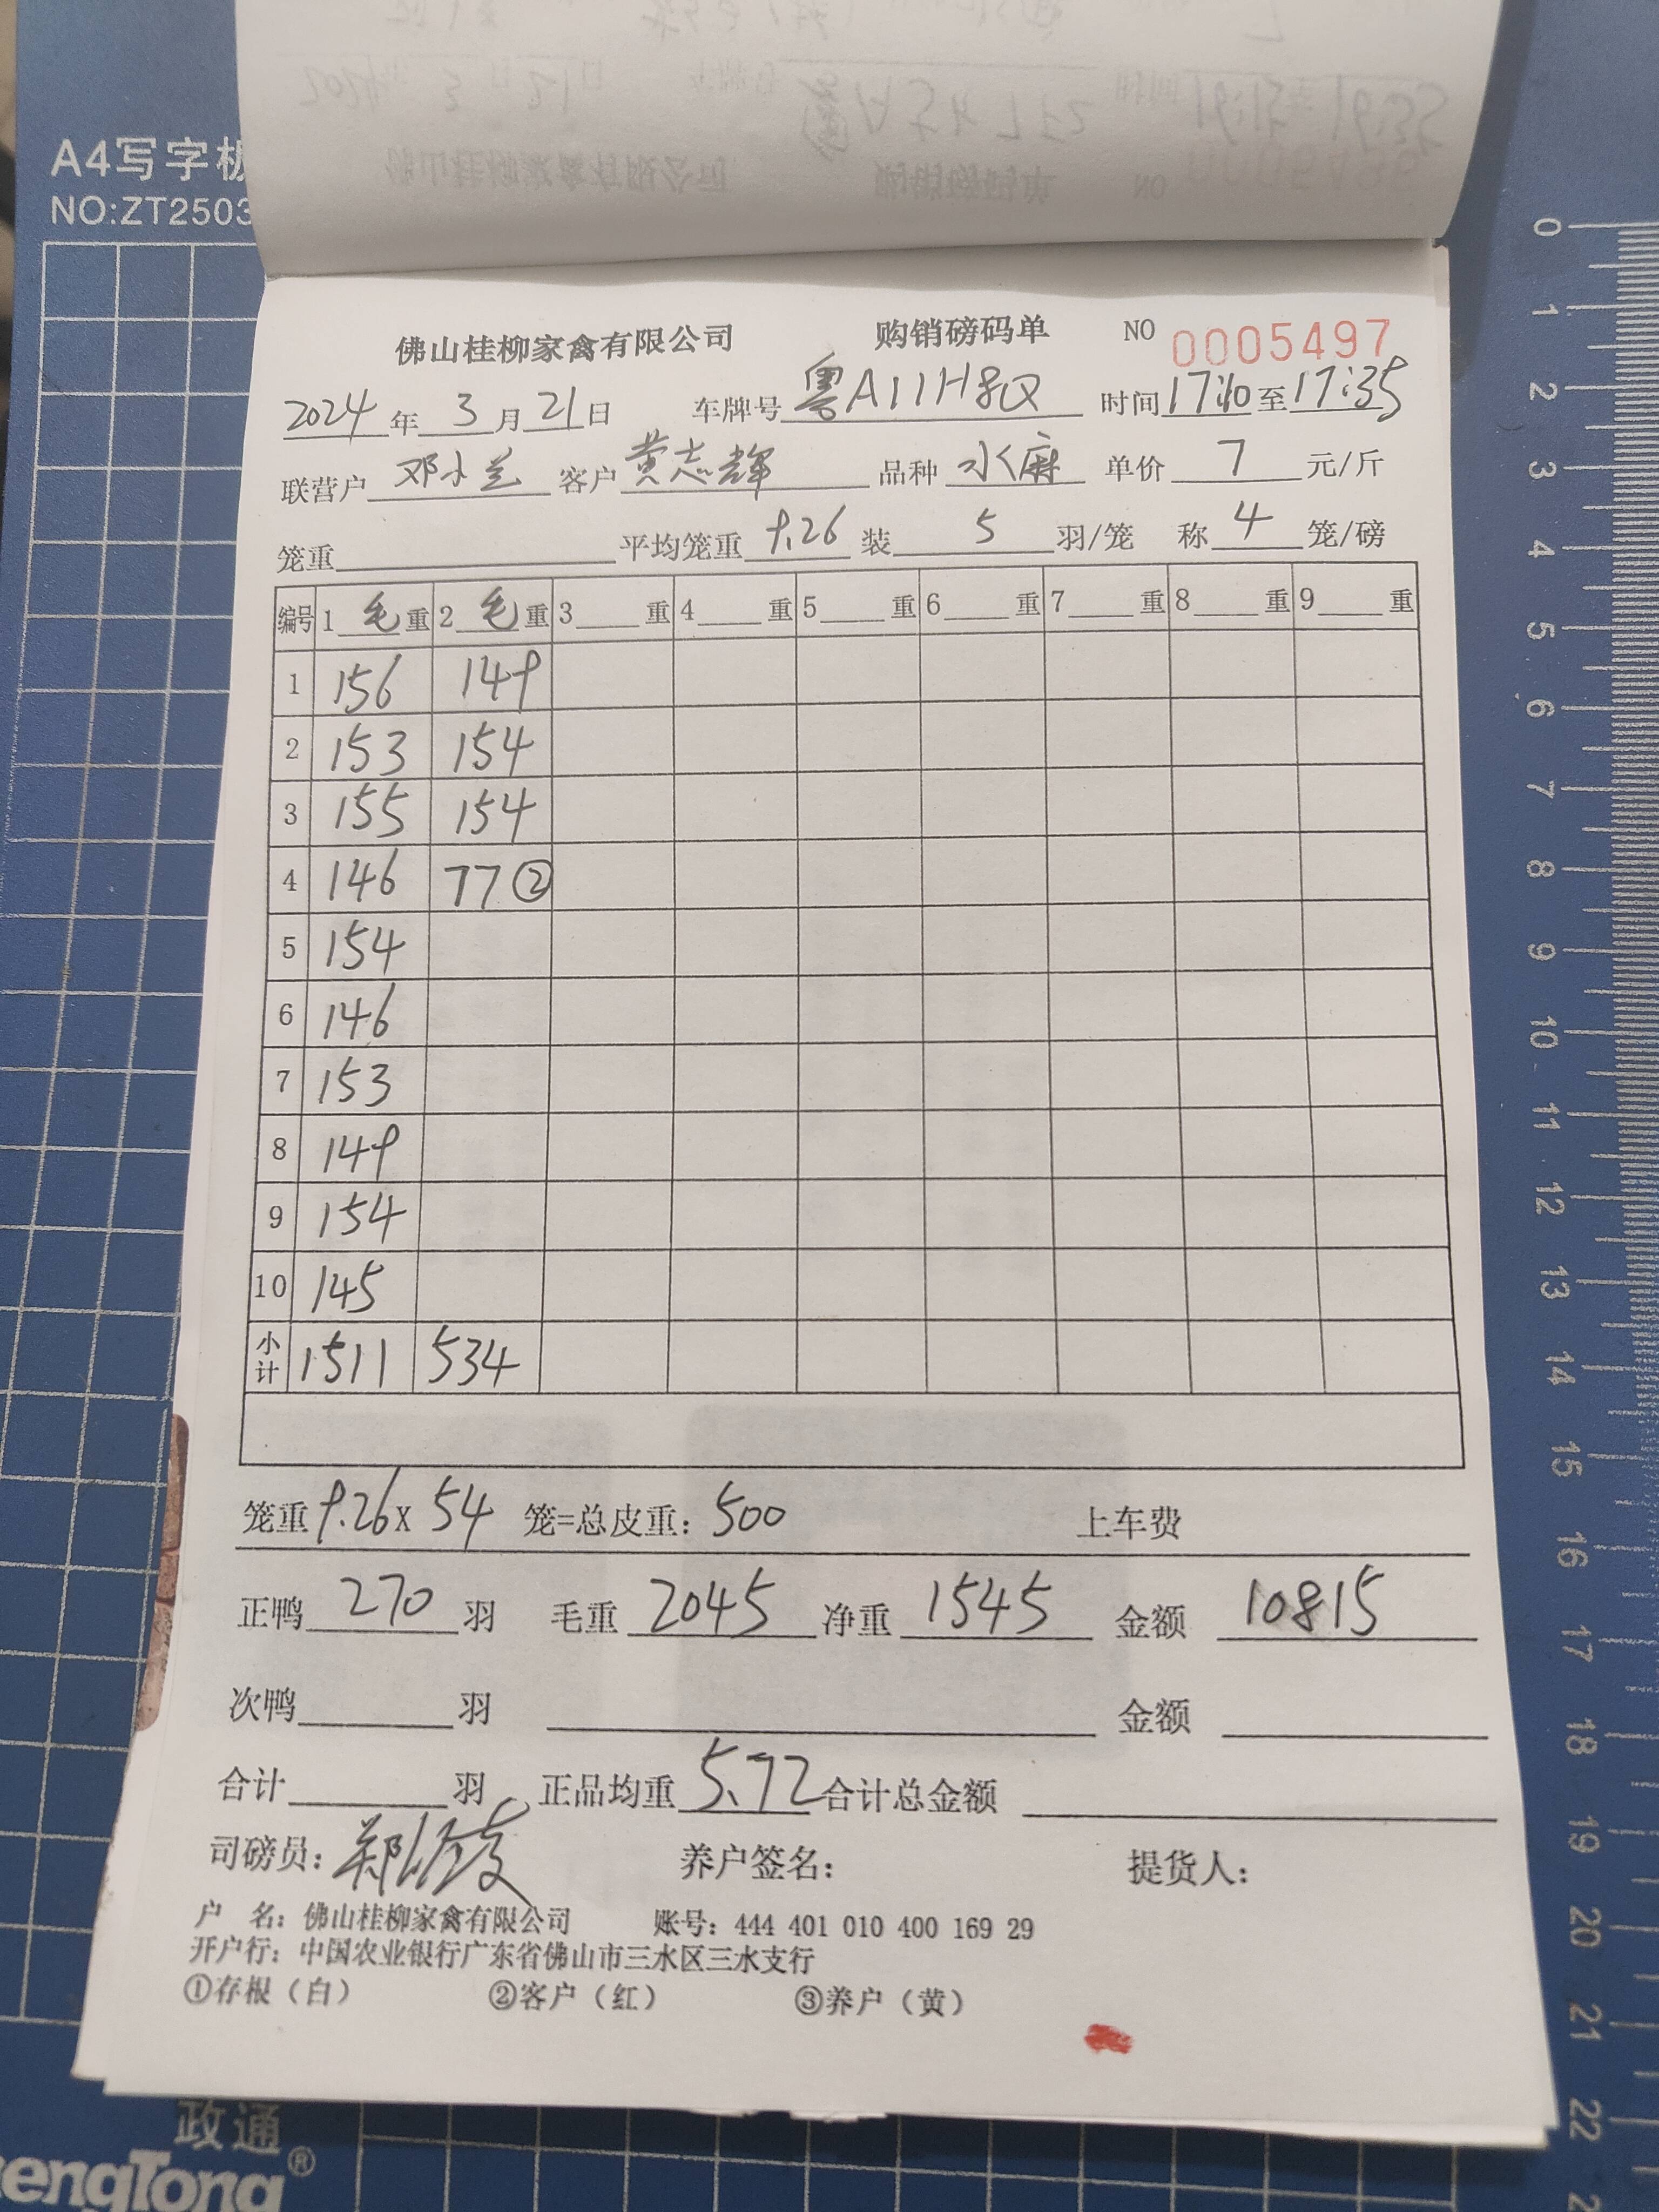 A4写字板
NO:ZT2503
佛山桂柳家禽有限公司 购销磅码单 NO 0005497
2024年3月21日 车牌号 粤A11H8Q 时间 17:10至17:35
联营户 邓小兰 客户 黄志辉 品种 水麻 单价 7 元/斤
笼重 平均笼重 9.26 装 5 羽/笼 称 4 笼/磅
编号 1 毛重 2 毛重 3 重 4 重 5 重 6 重 7 重 8 重 9 重
1 156 149
2 153 154
3 155 154
4 146 77②
5 154
6 146
7 153
8 149
9 154
10 145
小计 1511 534
笼重 9.26 x 54 笼=总皮重: 500 上车费
正鸭 270 羽 毛重 2045 净重 1545 金额 10815
次鸭 羽 金额
合计 羽 正品均重 5.72 合计总金额
司磅员: 养户签名: 提货人:
户 名: 佛山桂柳家禽有限公司 账号: 444 401 010 400 169 29
开户行: 中国农业银行广东省佛山市三水区三水支行
①存根（白） ②客户（红） ③养户（黄）
政通
engTong®
0
1
2
3
4
5
6
7
8
9
10
11
12
13
14
15
16
17
18
19
20
21
22